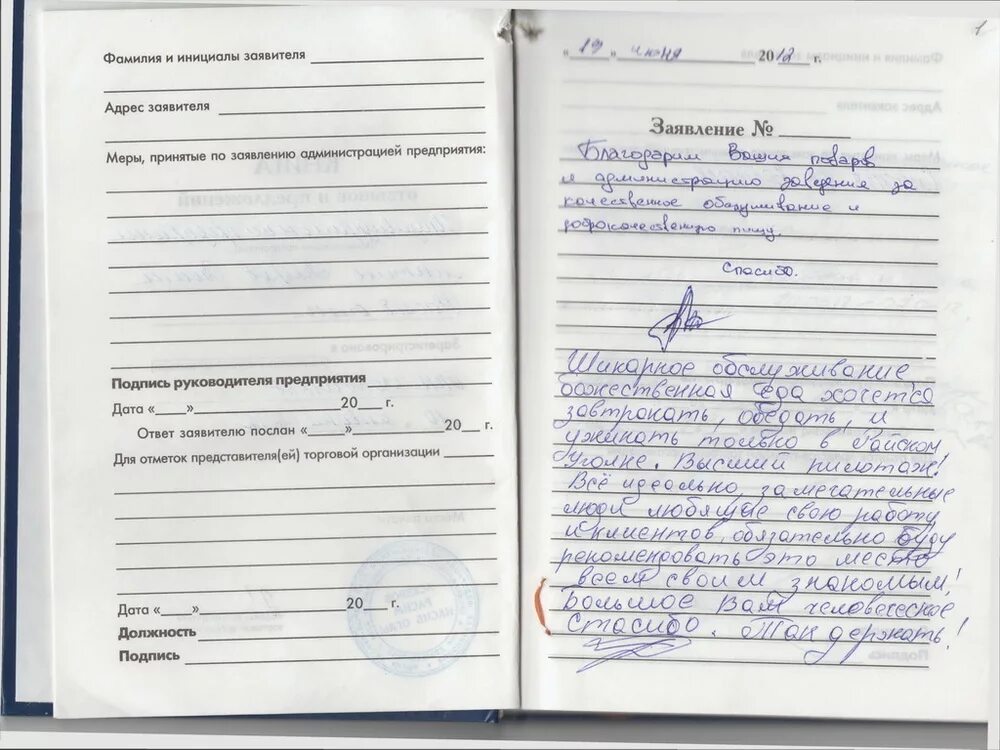 Фамилия и инициалы заявителя
Адрес заявителя
Меры, принятые по заявлению администрацией предприятия:
Подпись руководителя предприятия
Дата «____»____________________ 20___ г.
Ответ заявителю послан «_____»____________20___ г.
Для отметок представителя(ей) торговой организации
Дата «____»____________________ 20___ г.
Должность
Подпись
1
«19» июня 2012 г.
Заявление №
Благодарим Ваших поваров
и администрацию заведения за
качественное обслуживание и
доброкачественную пищу.
Спасибо.
Шикарное обслуживание
божественная еда хочется
завтракать, обедать, и
ужинать только в Райском
уголке. Высший пилотаж!
Всё идеально, замечательные
люди любящие свою работу
и клиентов, обязательно буду
рекомендовать это место
всем своим знакомым!
Большое Вам человеческое
Спасибо. Так держать!